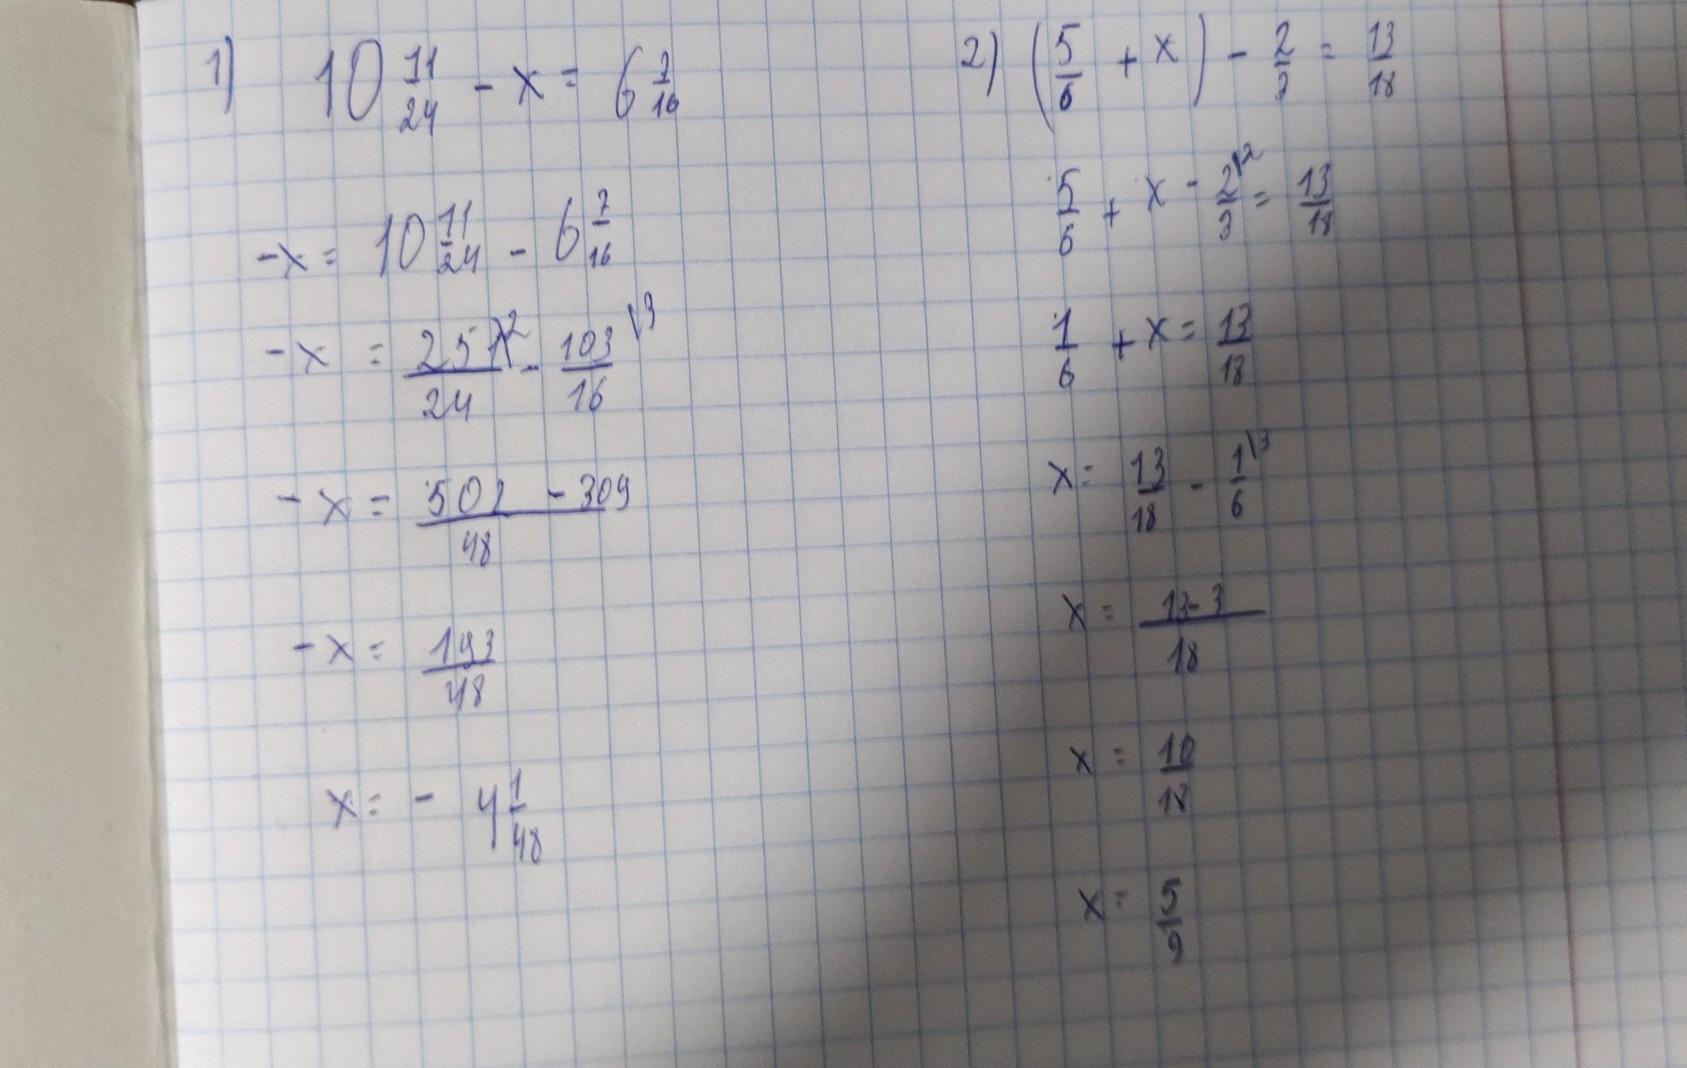 1) 10 11/24 - x = 6 7/16
-x = 10 11/24 - 6 7/16
-x = 251\2/24 - 103\3/16
-x = 502 - 309/48
-x = 193/48
x = - 4 1/48
2) (5/6 + x) - 2/3 = 13/18
5/6 + x - 2\2/3 = 13/18
1/6 + x = 13/18
x = 13/18 - 1\3/6
x = 13-3/18
x = 10/18
x = 5/9